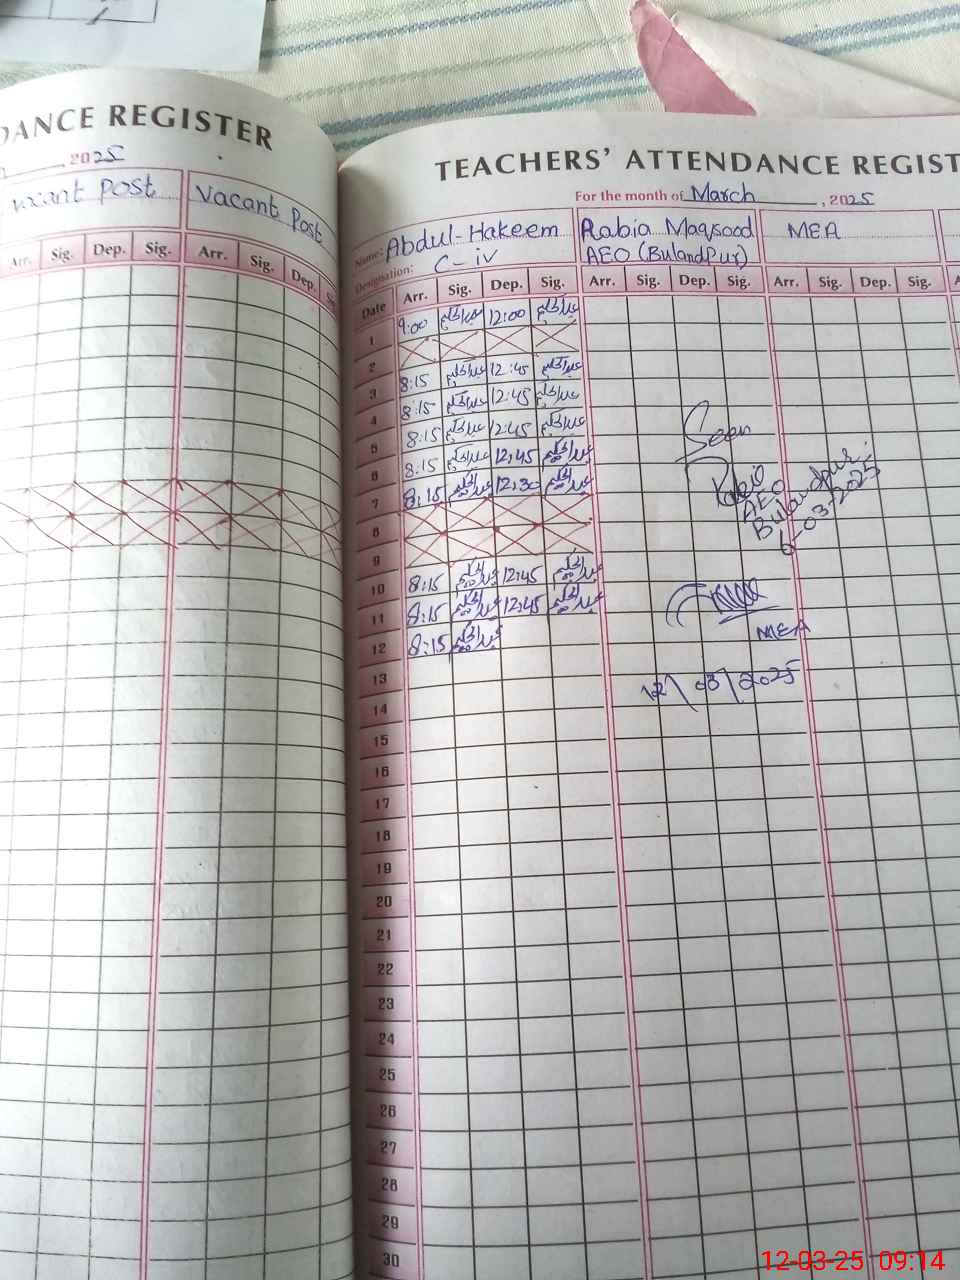 DANCE REGISTER
, 2025
vacant Post
Vacant Post
Arr. Sig. Dep. Sig. Arr. Sig. Dep.
TEACHERS' ATTENDANCE REGIST
For the month of March , 2025
Name: Abdul-Hakeem
Rabia Maqsood
MEA
Designation: C-iv
AEO (BulandPur)
Date Arr. Sig. Dep. Sig. Arr. Sig. Dep. Sig. Arr. Sig. Dep. Sig.
1 9:00 12:00
2
3 8:15 12:45
4 8:15 12:45
5 8:15 12:45
6 8:15 12:45
7 8:15 12:30
8
9
10 8:15 12:45
11 8:15 12:45
12 8:15
13
14
15
16
17
18
19
20
21
22
23
24
25
26
27
28
29
30
Seen
AEO
Bulandpur
6-03-2025
MEA
12/03/2025
12-03-25 09:14